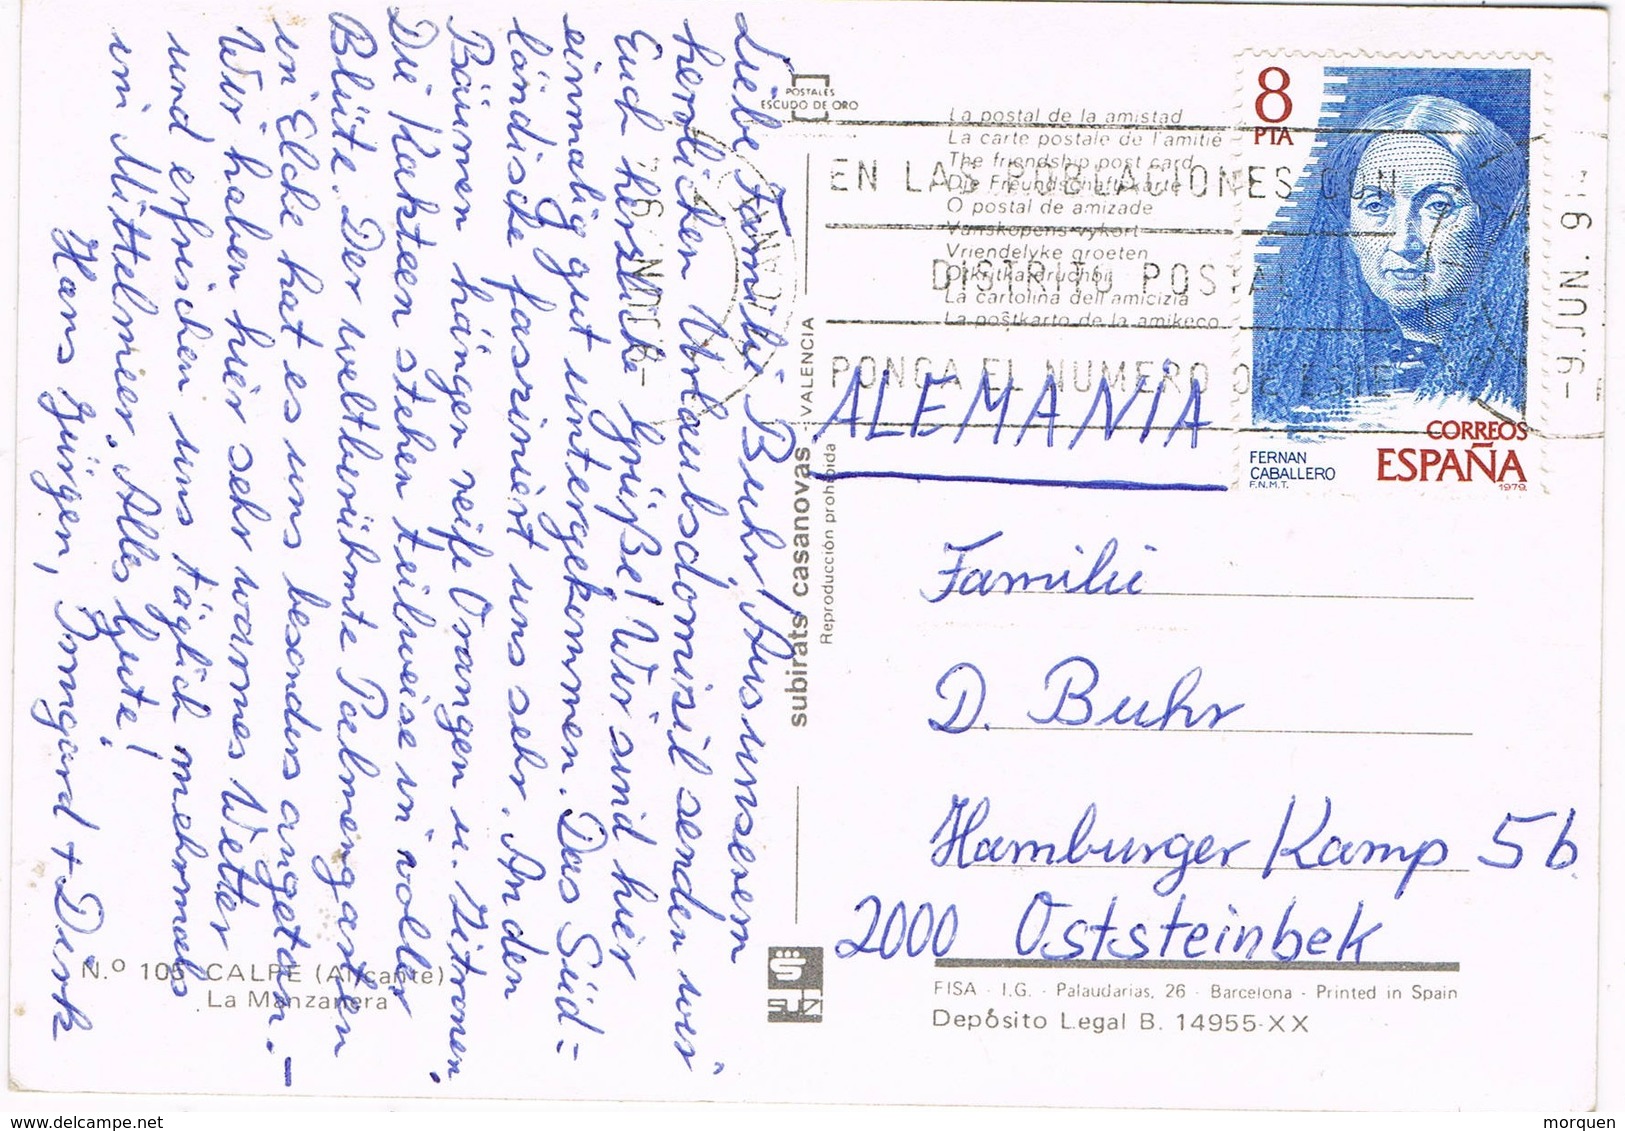 Liebe Familie Buhr! Aus unserem
herrlichen Urlaubsdomizil senden wir
Euch herzliche Grüße! Wir sind hier
einmalig gut untergekommen. Das Süd=
ländische fasziniert uns sehr. An den
Bäumen hängen reife Orangen u. Zitronen.
Die Kakteen stehen teilweise in voller
Blüte. Der weltberühmte Palmengarten
in Elche hat es uns besonders angetan. –
Wir haben hier sehr warmes Wetter
und erfrischen uns täglich mehrmals
im Mittelmeer. Alles Gute!
Hans Jürgen, Irmgard + Dirk
N.º 105 CALPE (Alicante)
La Manzanera
POSTALES
ESCUDO DE ORO
subirats casanovas - VALENCIA
Reproducción prohibida
La postal de la amistad
La carte postale de l'amitié
The friendship post card
Die Freundschaftskarte
O postal de amizade
Vanskapens vykort
Vriendelyke groeten
La cartolina dell'amicizia
La poŝtkarto de la amikeco
EN LAS POBLACIONES CON
DISTRITO POSTAL
PONGA EL NUMERO DE ESTE
-9.JUN.9
-9.JUN.9
ALICANTE
8
PTA
FERNAN
CABALLERO
F.N.M.T.
CORREOS
ESPAÑA
1979
ALEMANIA
Familie
D. Buhr
Hamburger Kamp 5b
2000 Oststeinbek
FISA - I.G. - Palaudarias, 26 - Barcelona - Printed in Spain
Depósito Legal B. 14955-XX
morquen